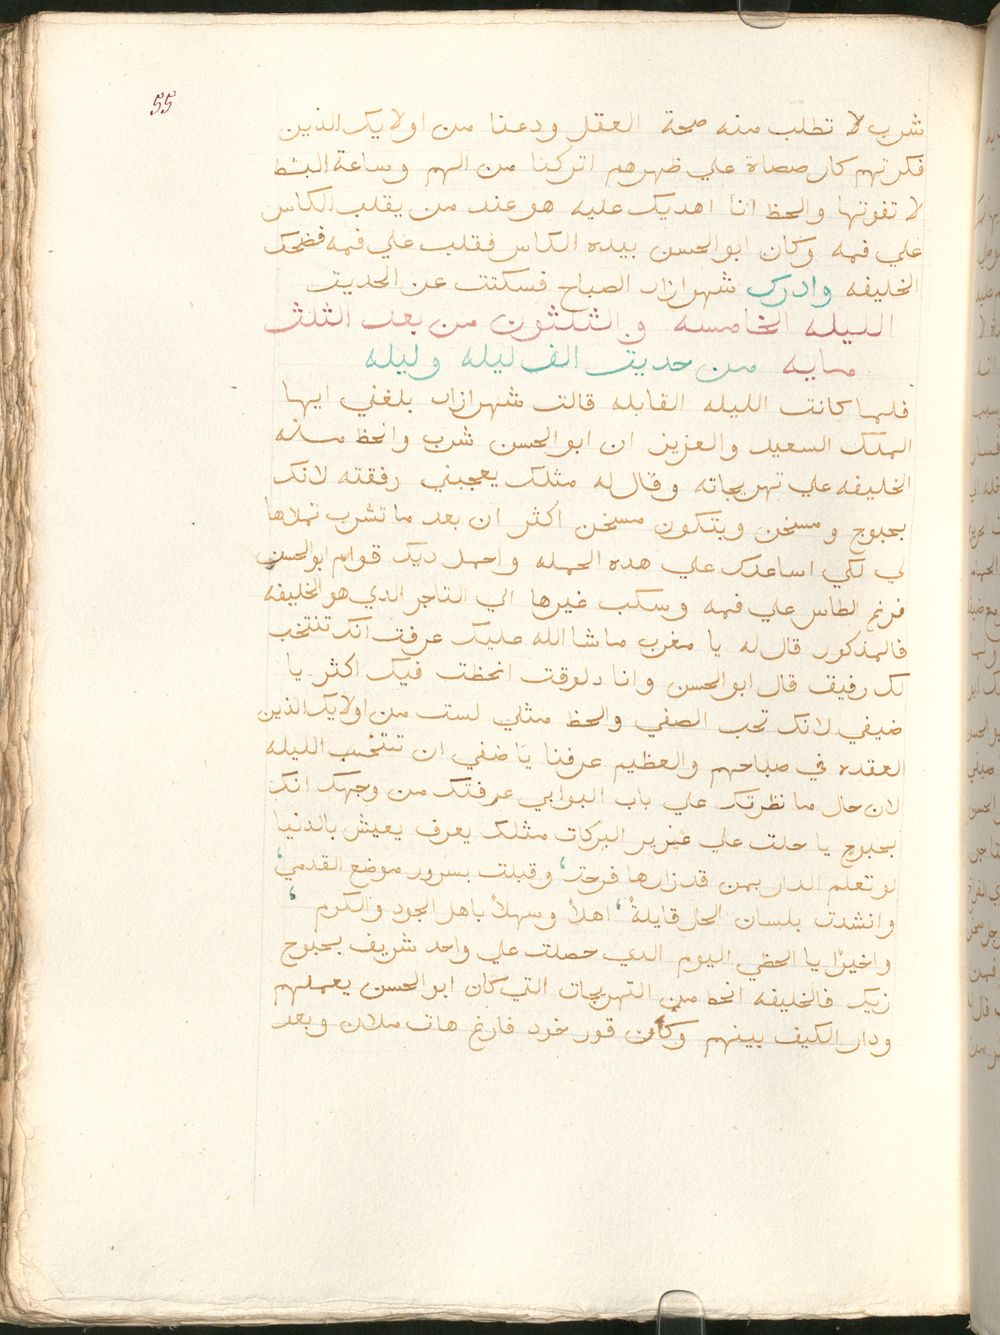 55
شرب لا تطلب منه صحة العقل ودعنا من اولايك الذين
فكرتهم كار مصاة علي ظهرهم اتركنا من الهم وساعة البسط
لا تفوتها والحظ انا اهديك عليه هو عند من يقلب الكاس
علي فمه وكان ابو الحسن بيده الكاس فقلب علي فمه فضحك
الخليفه وادرك شهرازاد الصباح فسكتت عن الحديت
الليله الخامسه و الثلثون من بعد الثلث
مايه من حديت الف ليله وليله
فلما كانت الليله القابله قالت شهرازاد بلغني ايها
الملك السعيد والعزيز ان ابو الحسن شرب وانحظ منه
الخليفه علي تهريجاته وقال له مثلك يعجبني رفقته لانك
بحبوح ومسخن وبتكون مسخن اكثر ان بعد ما تشرب تملاها
لي لكي اساعدك علي هده الحمله واحمل ديك قوام ابو الحسن
فرغ الطاس علي فمه وسكب غيرها الي التاجر الدي هو الخليفه
فالمذكور قال له يا مغرب ما شا الله عليك عرفت انك تنتخب
لك رفيق قال ابو الحسن وانا دلوقت انحظت فيك اكثر يا
ضيفي لانك تحب الصفي والحظ مثلي لست من اولايك الذين
العقده في صباحهم والعظيم عرفنا يا ضفي ان تنتخب الليله
لان حال ما نظرتك علي باب البوابي عرفتك من وجهك انك
بحبوح يا حلت علي عزير البركات مثلك يعرف يعيش بالدنيا
لو تعلم الدار بمن قد زارها فرحت‘ وقبلت بسرور موضع القدمي‘
وانشدت بلسان الحل قايلةً‘ اهلاً وسهلاً باهل الجود والكرم ‘
واخيرًا يا الحظي اليوم الدي حصلت علي واحد شريف بحبوح
زيك فالخليفه انحظ من التهريجات التي كان ابو الحسن يعملهم
ودار الكيف بينهم وكان قور خود فارغ هات ملان وبعد